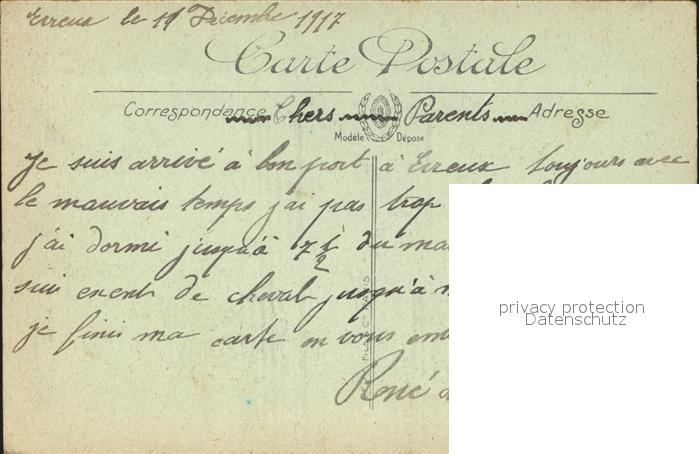 Evreux le 11 Décembre 1917
Carte Postale
Correspondance Chers Parents Adresse
Modèle Déposé
Je suis arrivé à bon port à Evreux toujours avec
le mauvais temps j'ai pas trop
j'ai dormi jusqu'à 7 1/2 du
suis de cheval jusqu'à
je finis ma carte en vous
René
privacy protection
Datenschutz